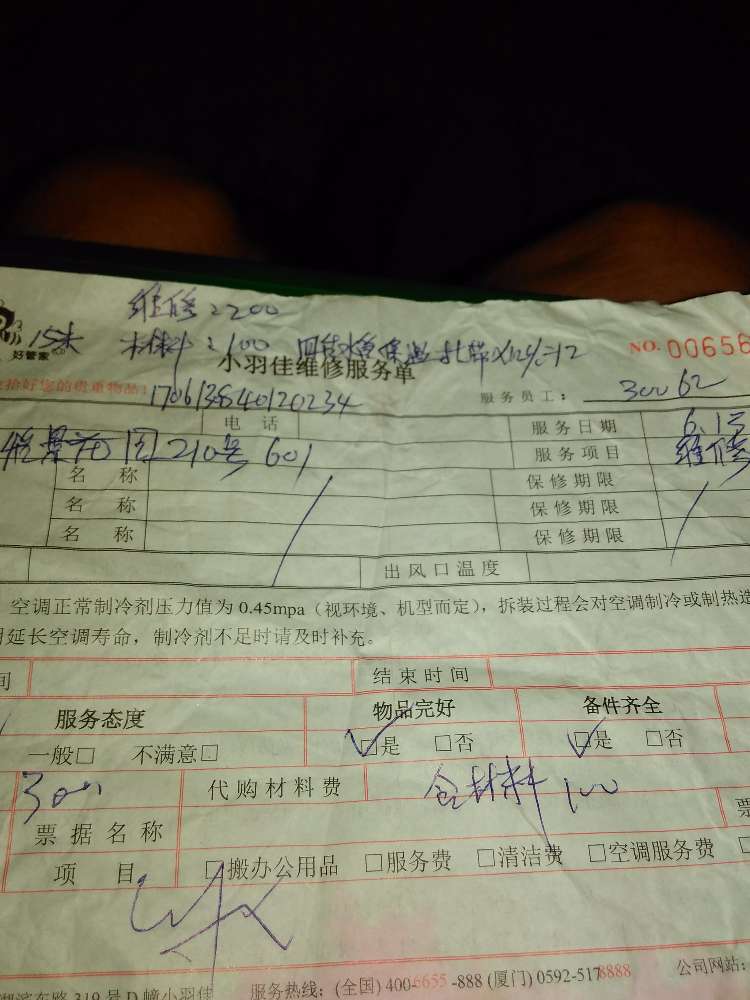 维修:200
15米 材料:100
好管家
小羽佳维修服务单
NO. 00656
拾好您的贵重物品!
服务员工: 30062
电 话
服务日期
210号 601
服务项目 维修
名 称
保修期限
名 称
保修期限
名 称
保修期限
出风口温度
空调正常制冷剂压力值为 0.45mpa(视环境、机型而定),拆装过程会对空调制冷或制热造
延长空调寿命,制冷剂不足时请及时补充。
间
结束时间
服务态度
物品完好
备件齐全
一般□ 不满意□
□是 □否
□是 □否
300
代购材料费
含材料 100
票据名称
票
项 目
□搬办公用品 □服务费 □清洁费 □空调服务费
湖滨东路 319 号 D 幢小羽佳
服务热线:(全国) 400-6655-888 (厦门) 0592-5178888
公司网站: